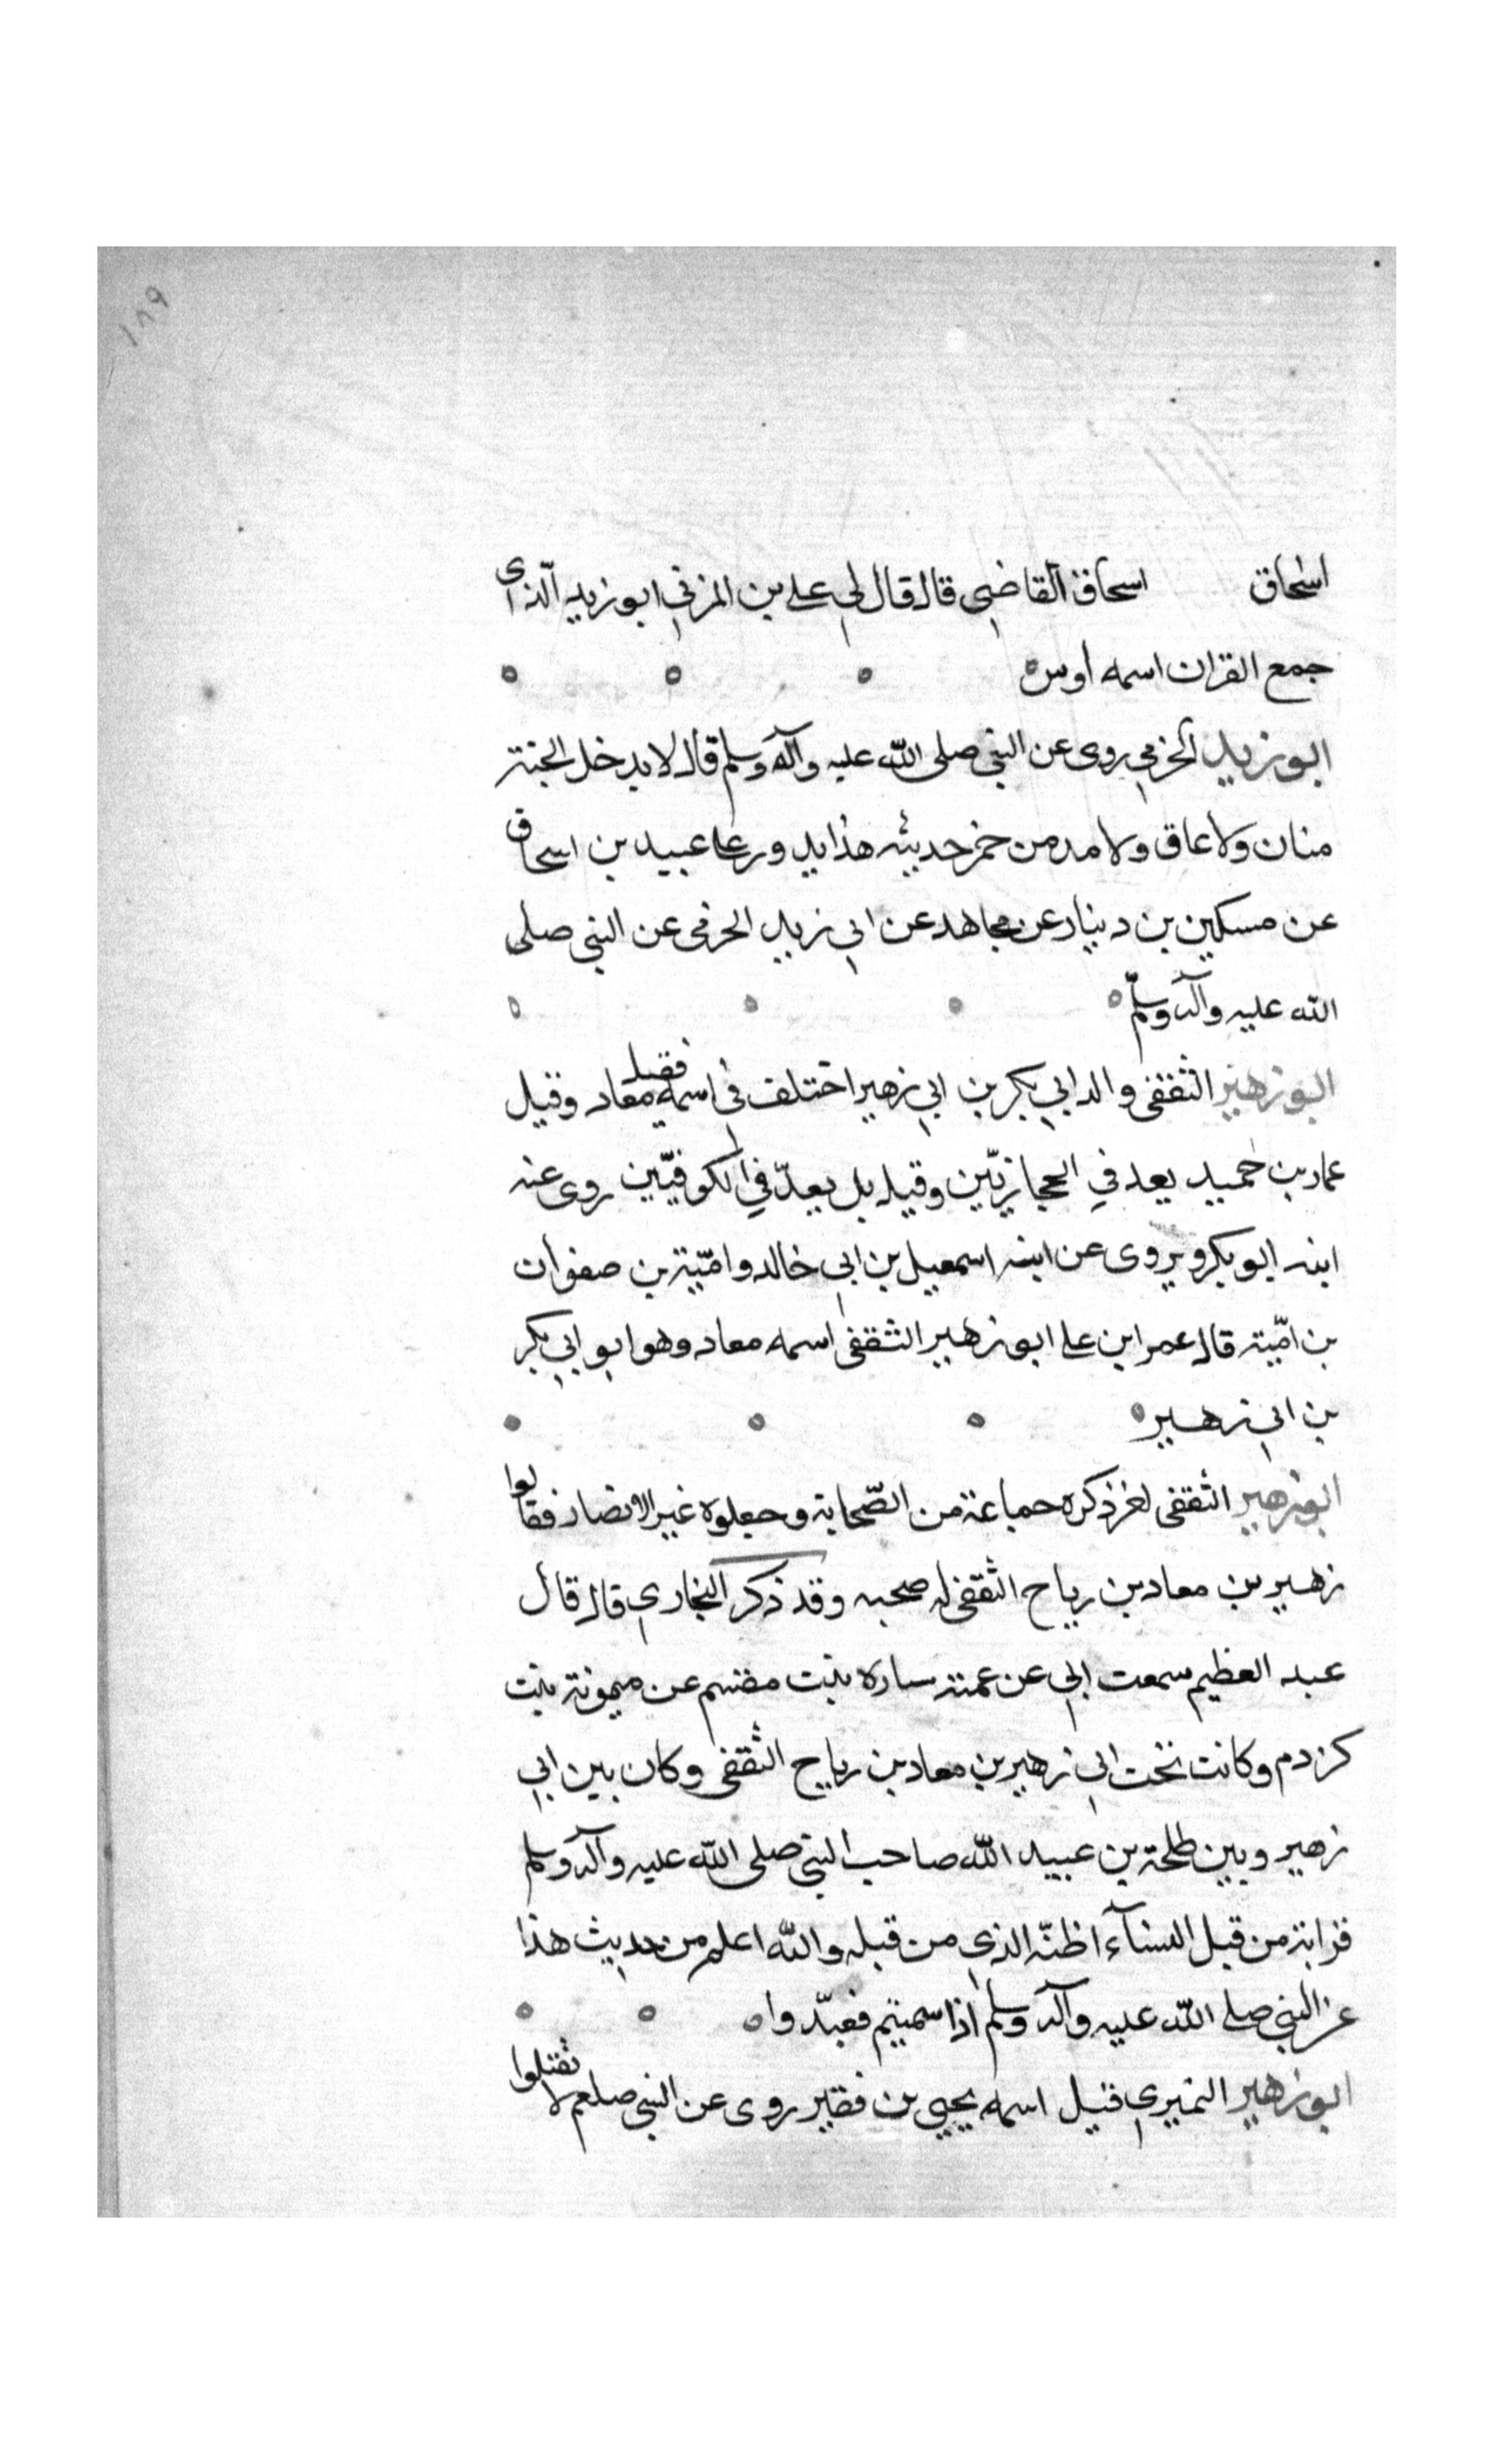 ١٨٩
اسحاق اسحاق القاضي قال قال لي علي بن المزني ابو زيد الذي
جمع القران اسمه اوس
ابو زيد الخرمي روى عن النبي صلى الله عليه وآله وسلم قال لا يدخل الجنة
منان ولا عاق ولا مدمن خمر حديثه هذا يدور على عبيد بن اسحاق
عن مسكين بن دينار عن مجاهد عن ابي زيد الحرفى عن النبي صلى
الله عليه وآله وسلم
ابو زهير الثقفى والد ابي بكر بن ابي زهير اختلف في اسمه فقيل معاد وقيل
عمار بن حميد يعد في الحجازيّين وقيل بل يعدّ في الكوفيّين روى عنه
ابنه ابو بكر ويروى عن ابنه اسمعيل بن ابي خالد وامّية بن صفوان
بن امّية قال عمر ابن على ابو زهير الثقفى اسمه معاد وهو ابو ابي بكر
بن ابي زهير
ابو زهير الثقفى ذكره جماعة من الصّحابة وجعلوه غير الانصار فقالوا
زهير بن معاد بن رياح الثقفى له صحبه وقد ذكر البخاري قال قال
عبد العظيم سمعت ابي عن عمته ساره بنت مقسم عن ميمونة بنت
كردم وكانت تحت ابي زهير بن معاد بن رياح الثقفى وكان بين ابي
زهير وبين طلحة بن عبيد الله صاحب النبي صلى الله عليه وآله وسلم
قرابة من قبل النسآء اظنّه الذي من قبله والله اعلم من حديث هذا
عن النبي صلى الله عليه وآله وسلم اذا سميتم فعبّدوا
ابو زهير النميري قيل اسمه يحيي بن فقير روى عن النبي صلعم لا تقتلوا